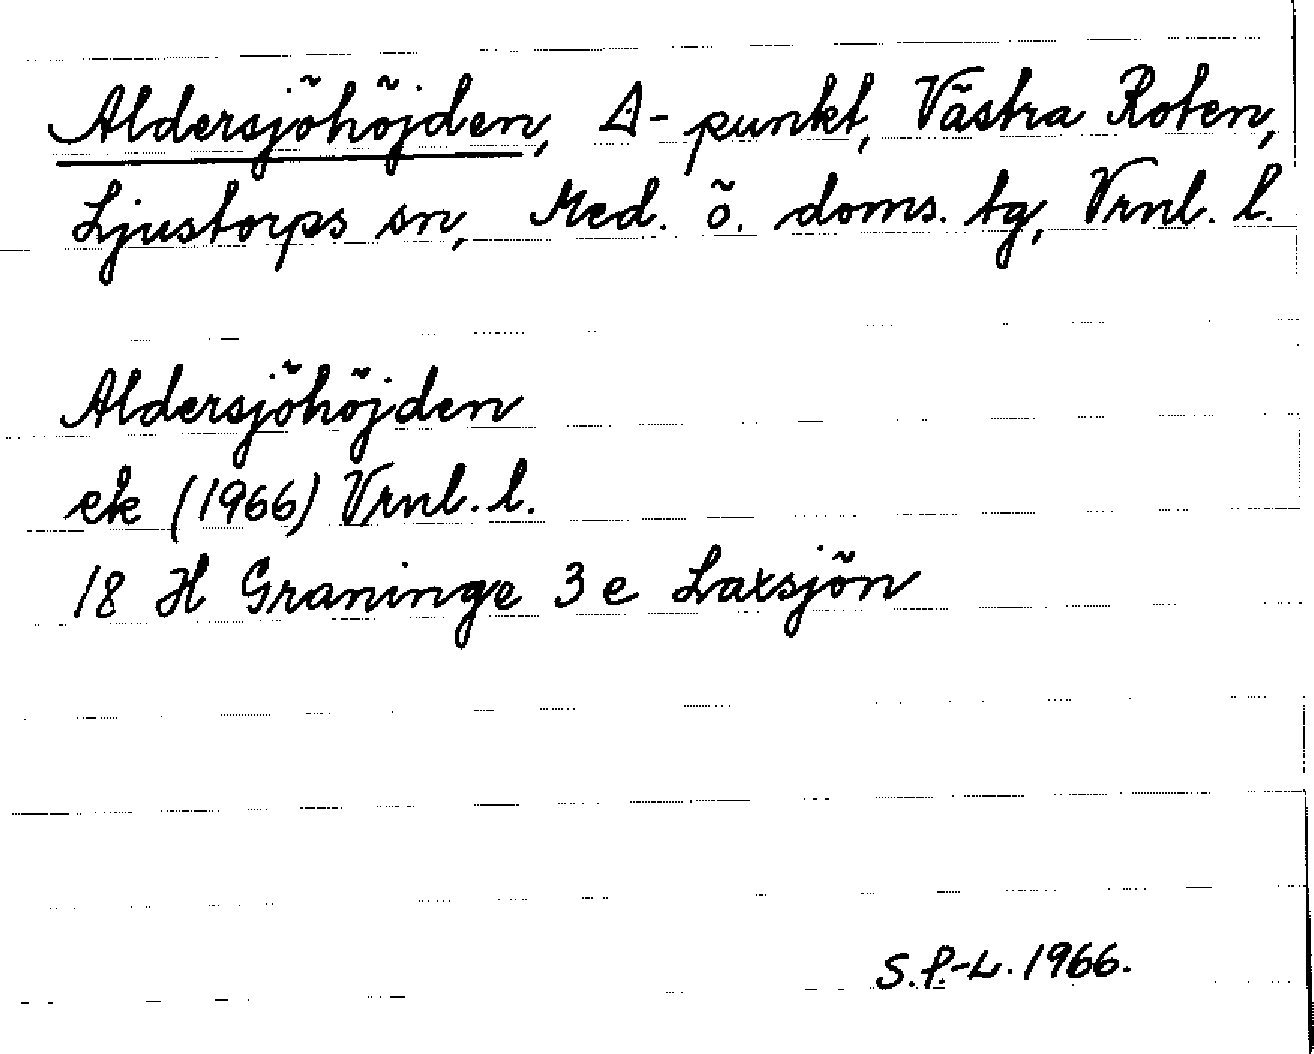 Aldersjöhöjden, Δ-punkt, Västra Roten,
Ljustorps sn, Med. ö. doms. tg, Vrnl. l.
Aldersjöhöjden
ek (1966) Vrnl. l.
18 H Graninge 3 e Laxsjön
S.P.-L. 1966.